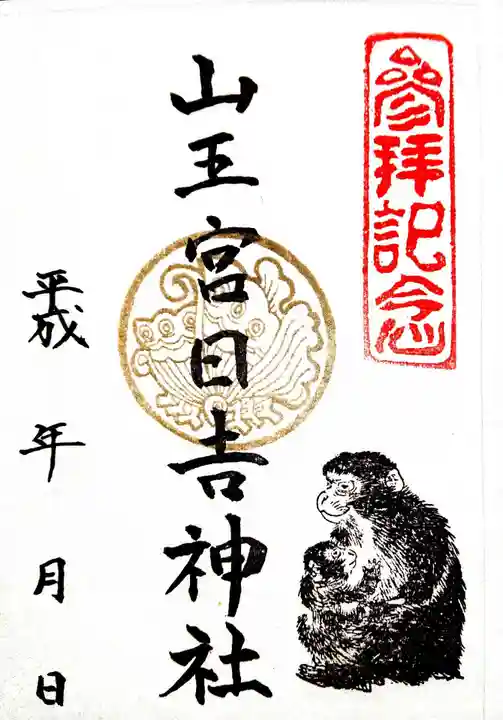 參拜記念
山王宮日吉神社
平成 年 月 日